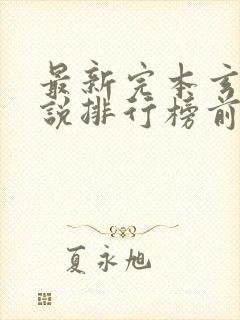 最新完本玄
說排行榜前
夏永旭